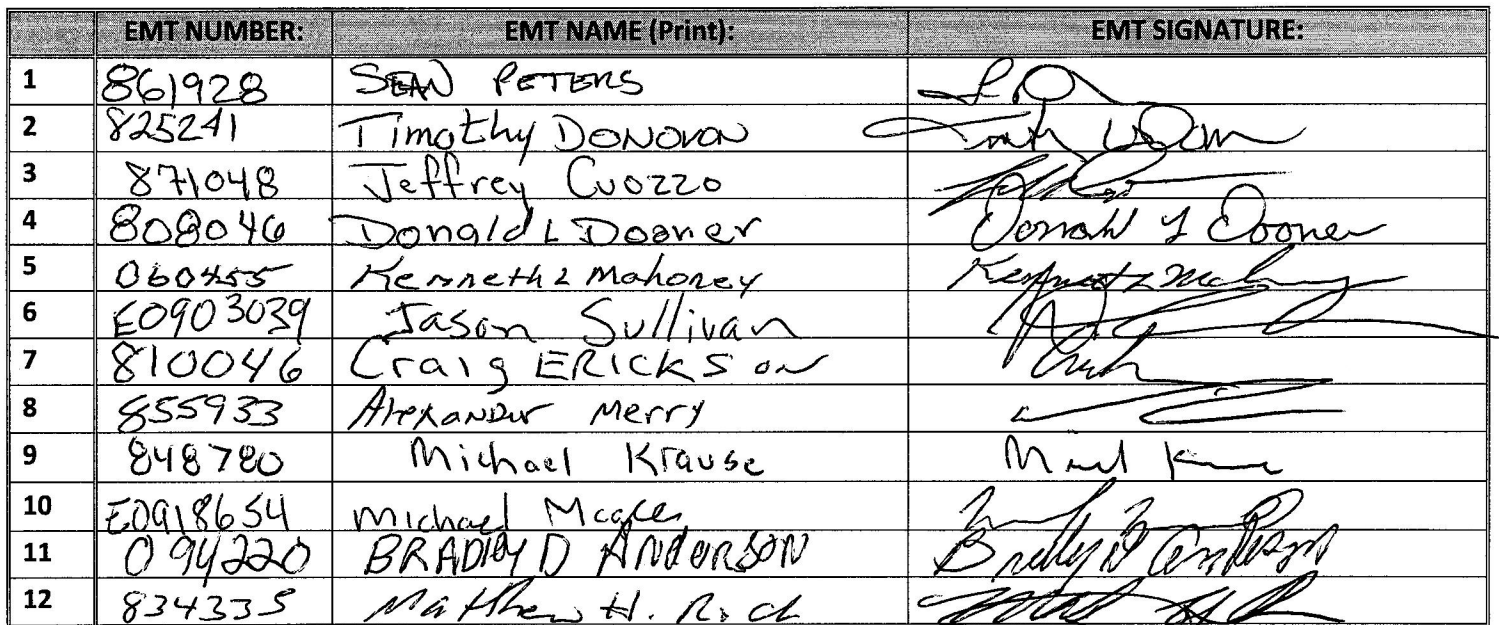 EMT NUMBER: EMT NAME (Print): EMT SIGNATURE:
1 861928 SEAN PETERS
2 825241 Timothy DONOVON
3 871048 Jeffrey Cuozzo
4 808046 Donald L Dooner Donald L Dooner
5 060455 Kenneth L Mahoney Kenneth L Mahoney
6 E0903039 Jason Sullivan
7 810046 Craig ERICKSON
8 855933 Alexander Merry
9 848780 Michael Krause
10 E0918654 Michael
11 094220 BRADLEY D ANDERSON Bradley D Anderson
12 834335 Matthew H. Rich